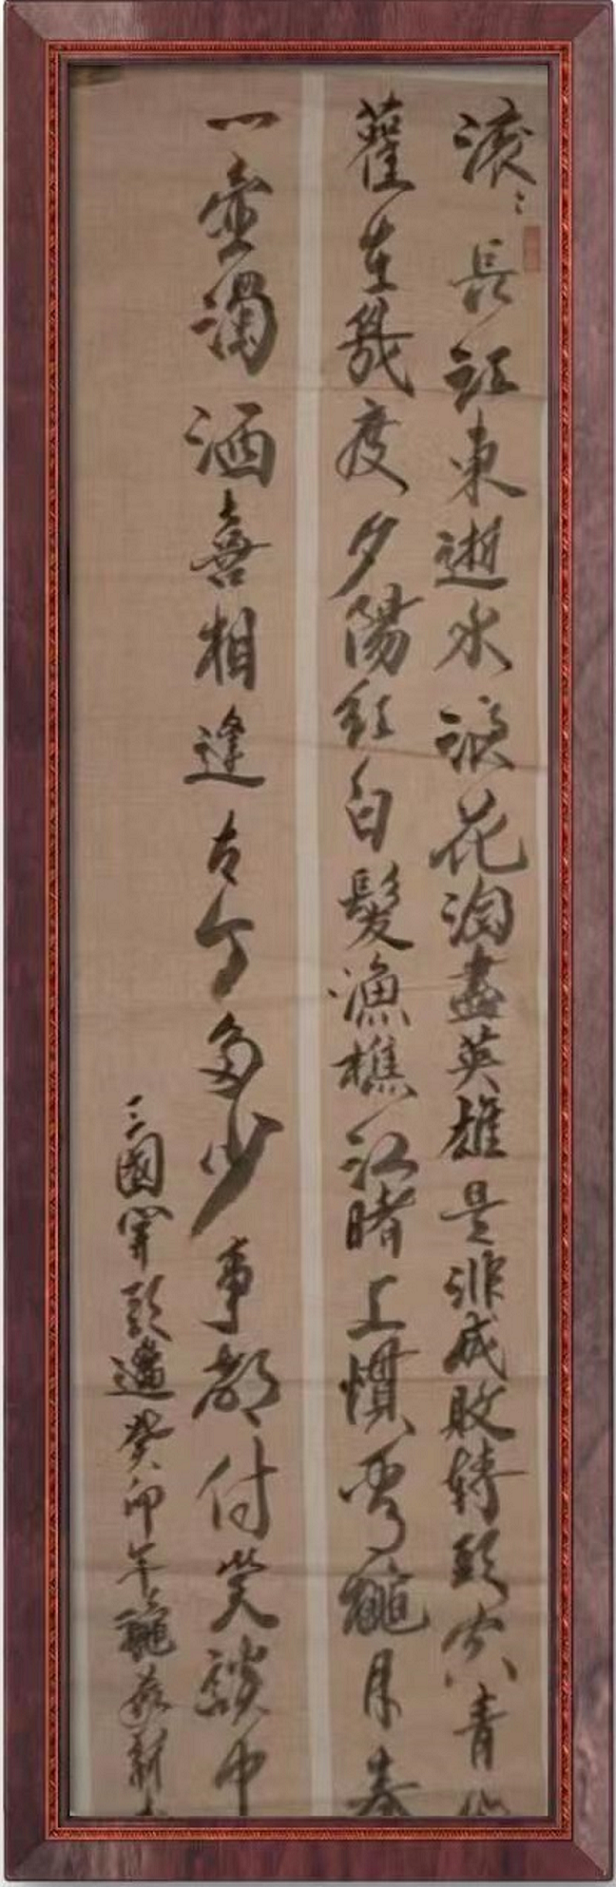 滚〻長江東逝水浪花淘盡英雄是非成敗轉頭空青
在幾度夕陽紅白髮漁樵江上慣龝月春
一壺濁酒喜相逢古今多少事都付笑談中
三國開頭癸卯年龝新